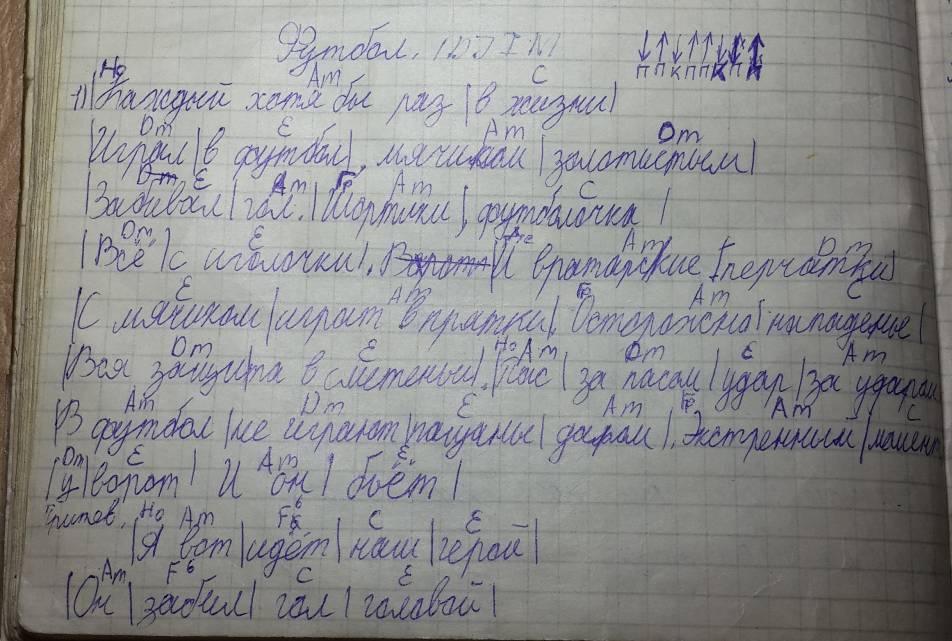 Футбол. (DJIM ↓↑↓↑↑↓↓↑
П П К П П К П К
Но Am C
1) |Каждый хотя бы раз | в жизни|
Dm E Am Dm
|Играл| в футбол|, мячиком | золотистым |
Dm E Am Гр Am C
|Забивал | гол. | Шортики |, футболочка |
Dm E Am Dm
|Всё | с иголочки|. | И вратарские | перчатки|
E Am Гр Am C
|С мячиком | играт в прятки|. Осторожно | нападенье |
Dm E Но Am Dm E Am
|Вся защита в сметеньи|. |Пас | за пасом | удар | за ударом
Am Dm E Am Гр Am C
|В футбол | не играют | пацаны | даром |. Экстренным | момент
Dm E Am E
|у | ворот | И он | бьёт |
Припев. Но Am F6 C E
|Я вот | идёт | наш | герой |
Am F6 C E
|Он | забил | гол | головой |